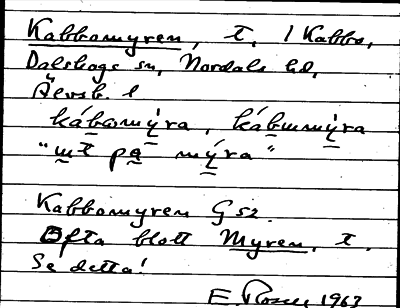 Kabbomyren, t, / Kabbo,
Dalskogs sn, Nordals hd,
Älvsb. l
kábωmy̱ra, kábɯmy̱ra
"ɯt på mýra"
Kabbomyren Gsz.
Ofta blott Myren, t.
Se detta!
E. Rosén 1963